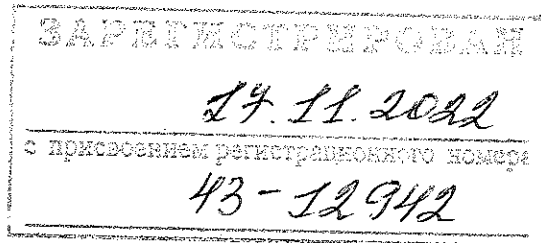 ЗАРЕГИСТРИРОВАН
17.11.2022
с присвоением регистрационного номера
43-12942